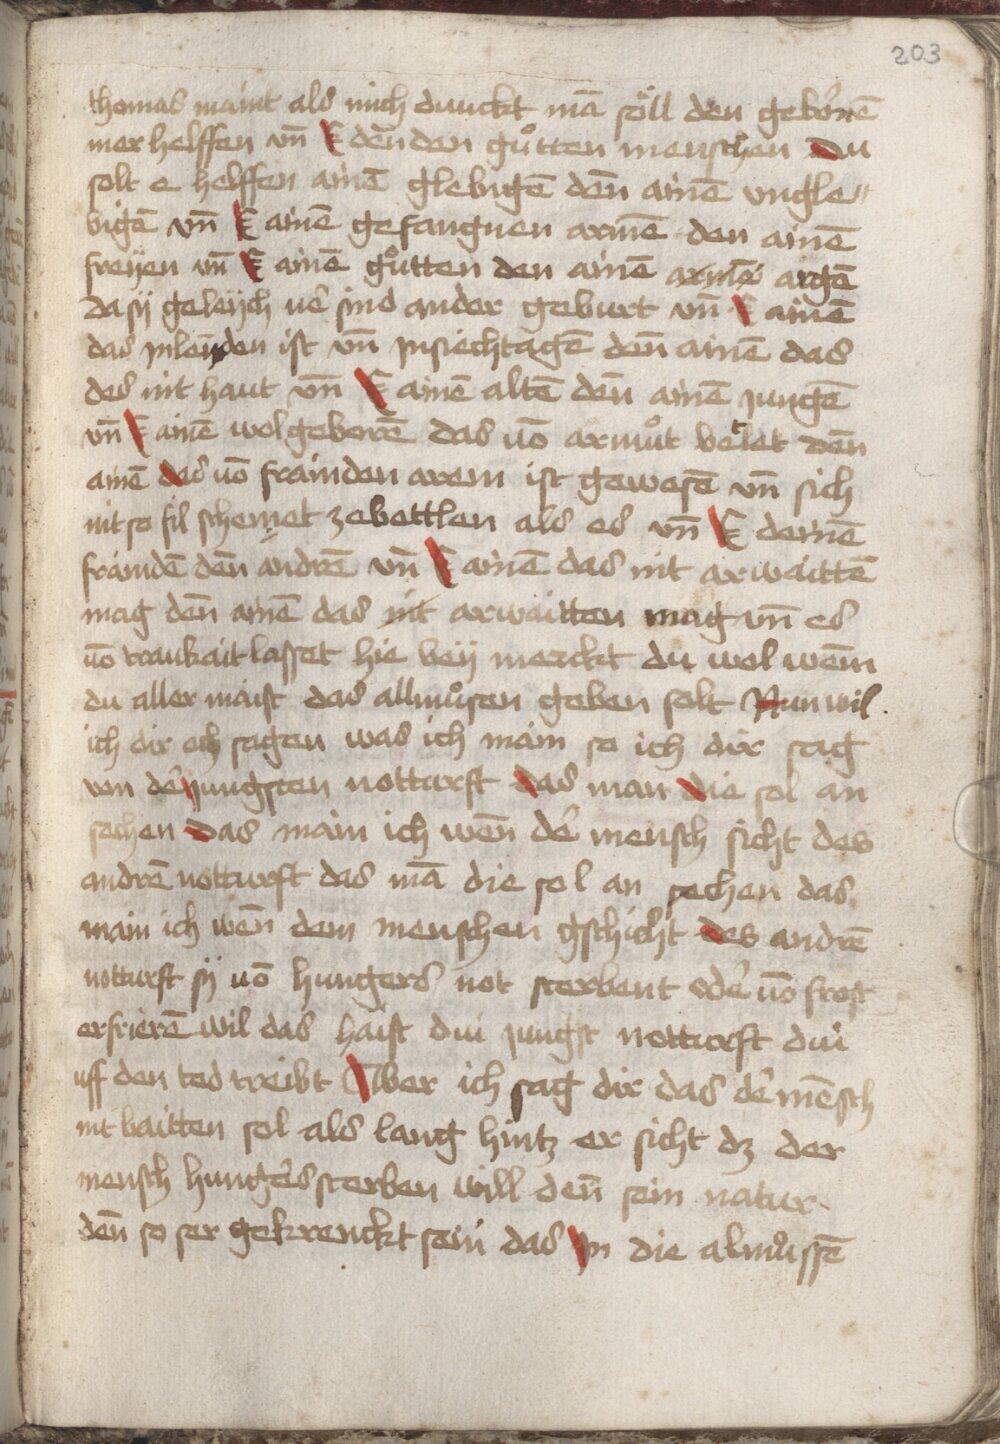 203
thomas maint als mich dunckt mā söll den gebornē
mer helffen vn̄ E den den gůtten menschen Du
solt e helffen ainē glebigē den̄ ainē vngle„
bigē vn̄ E ainē gefangnen armē den ainē
freyen vn̄ E ainē gůtten den ainē argē
da sÿ geleych vē sind ander geburt vn̄ E ainē
das jnlenden ist vn̄ jnsiechtagē den̄ ainē das
des nit haut vn̄ E ainē altē den̄ ainē jungē
vn̄ E ainē wolgeborē das vō armůt betlet den̄
ainē das vō frainden arem ist gewesē vn̄ sich
nit so fil schemet zebettlen als es vn̄ E demē
frāmdē den̄ andrē vn̄ E ainē das nit arwaittē
mag den̄ ainē das nit arwaitten mag vn̄ es
vō trankait lasset hie beÿ merckt du wol wem̄
du aller maist das allmůsen geben solt Nun wil
ich dir och sagen was ich main so ich dir sag
von dē jungsten notturft das man die sol an
sechen Das main ich wen̄ dē mensch sicht des
andrē notturft das mā die sol an sechen das
main ich wen̄ dem menschen gschicht des andrē
notturft sÿ vō hungers not sterbent odē vō frost
erfrierē wil das haist dui jungst notturft dui
uff den tod treibt Aber ich sag dir das dē mēsch
nit baitten sol als lang hintz er sicht dz der
mensch hungers sterben will den̄ sein natur
den̄ so ser gekrenckt sein das jn die almůssē